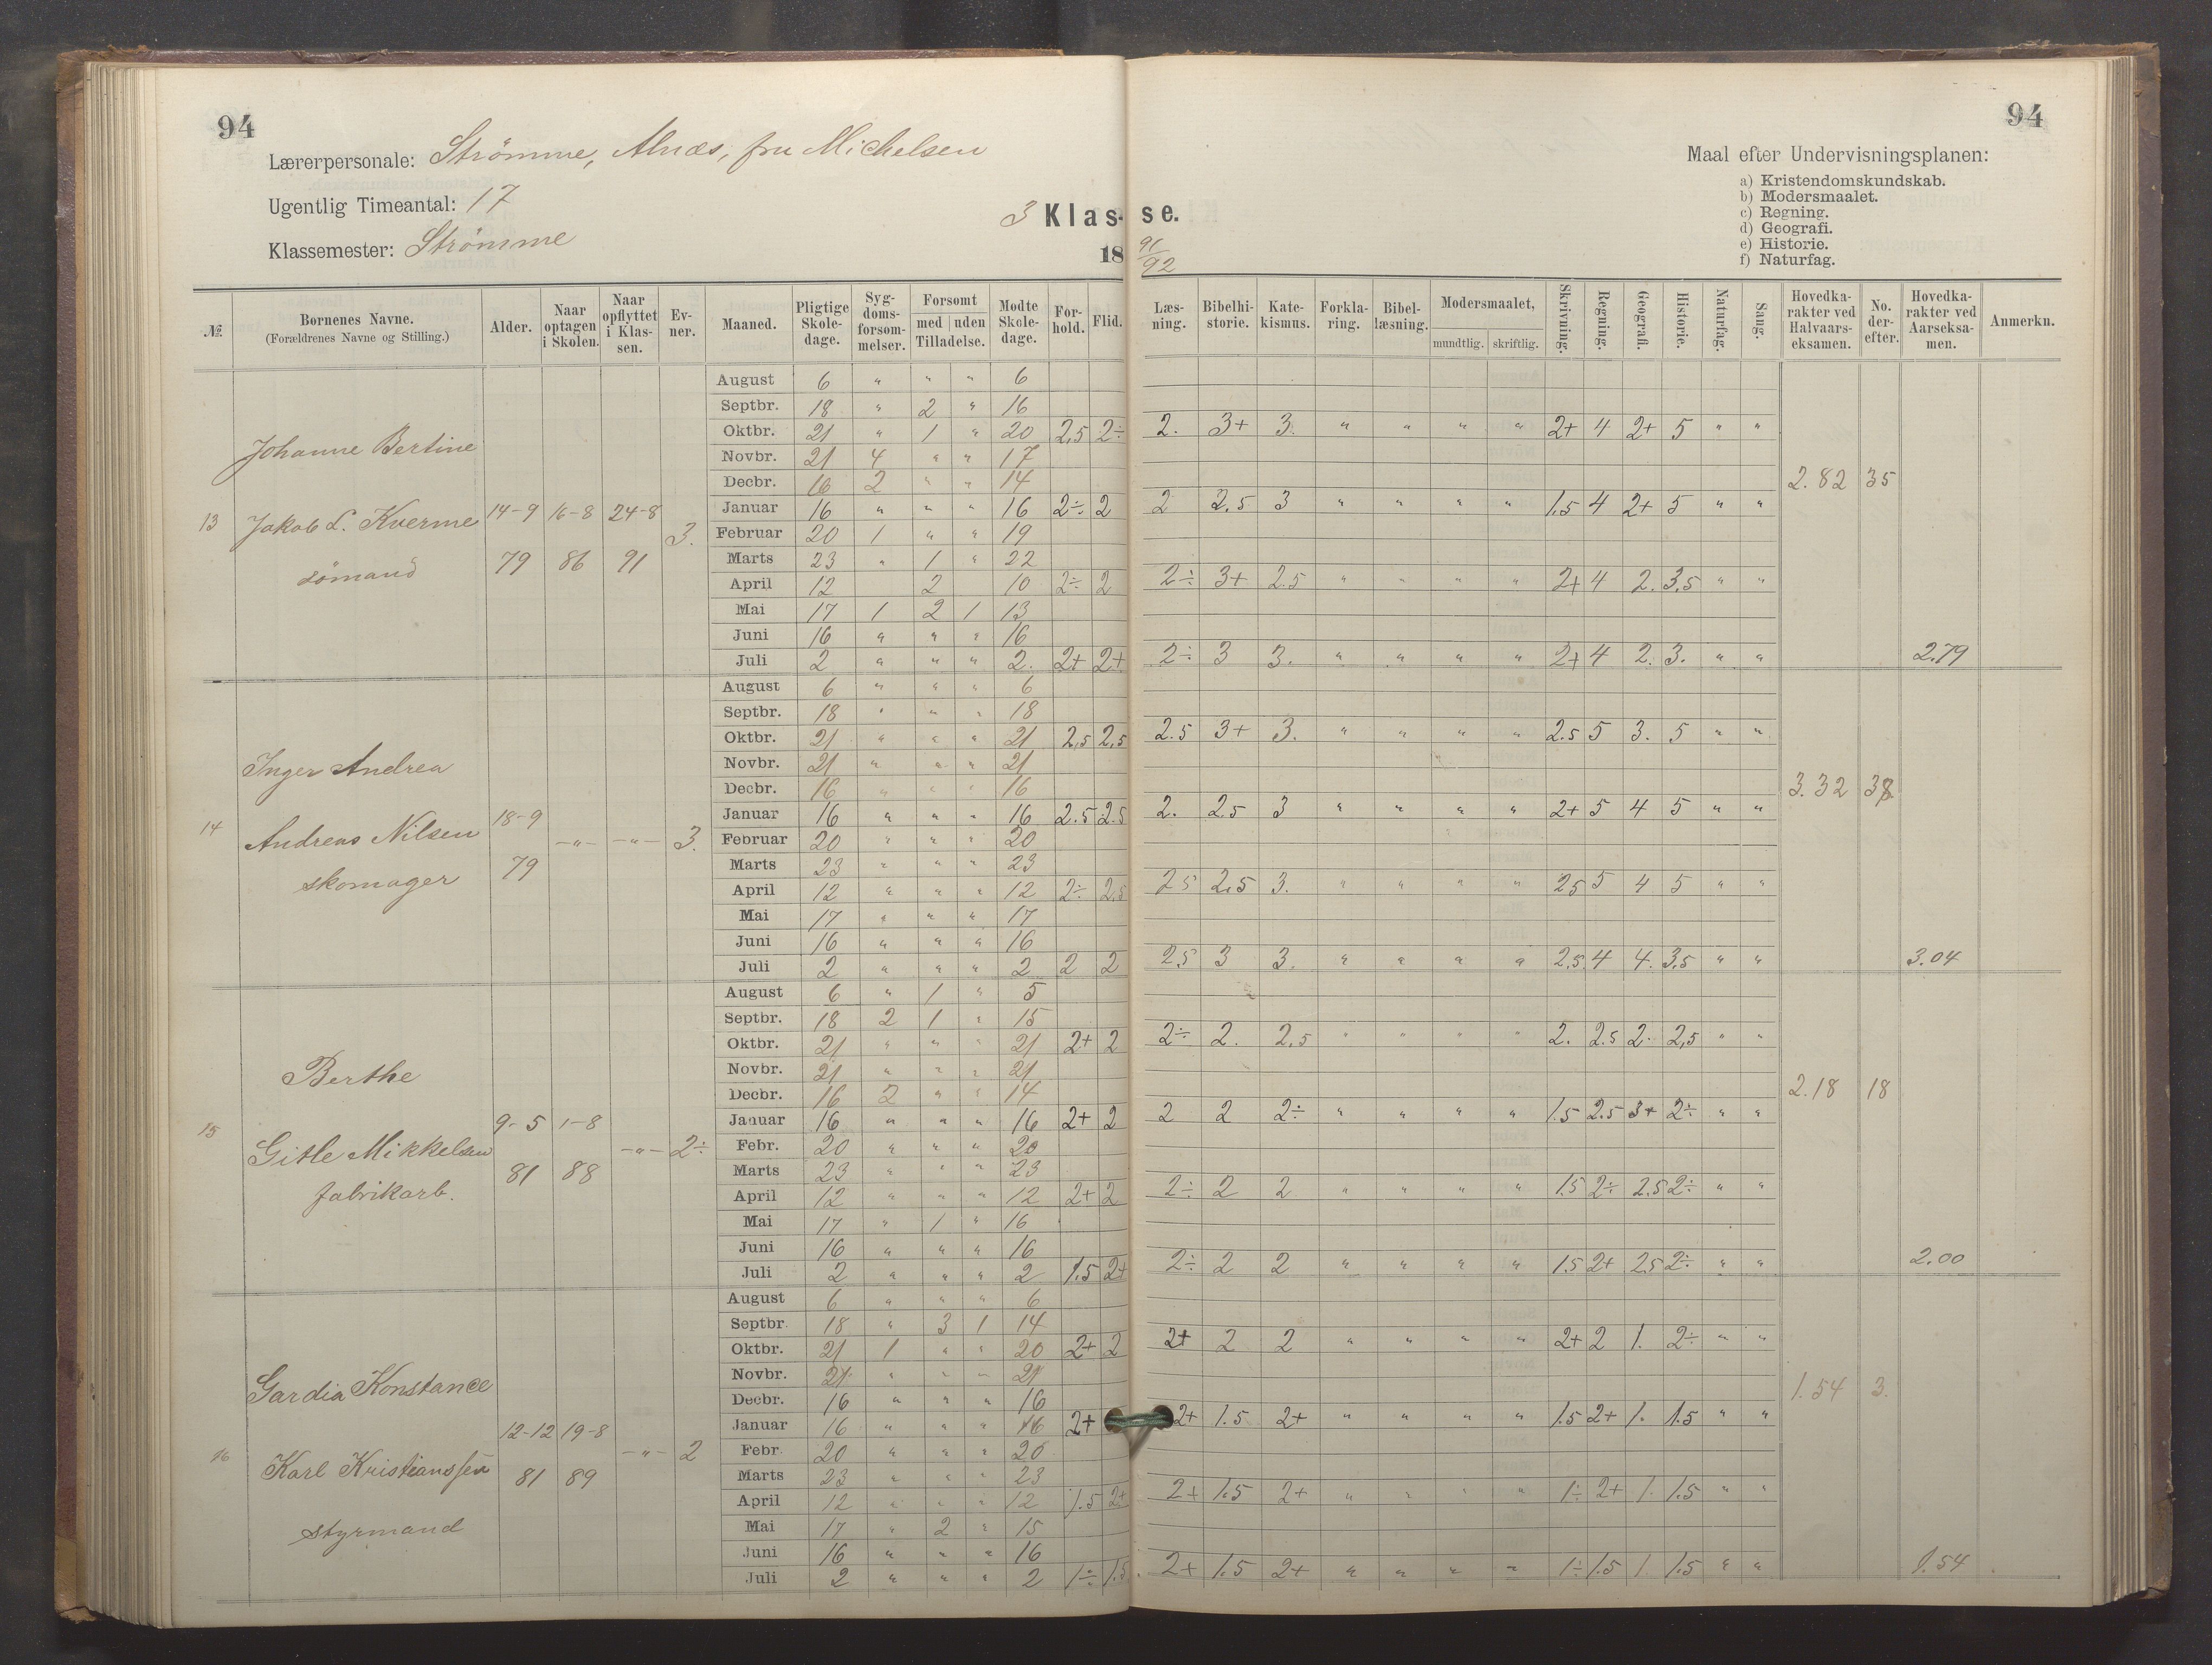 94
94
Lærerpersonale: Strømme, Alnæs, fru Michelsen
Ugentlig Timeantal: 17
Klassemester: Strømme
3 Klasse.
1891/92
Maal efter Undervisningsplanen:
a) Kristendomskundskab.
b) Modersmaalet.
c) Regning.
d) Geografi.
e) Historie.
f) Naturfag.
№ Børnenes Navne. (Forældrenes Navne og Stilling.) Alder. Naar optagen i Skolen. Naar opflyttet i Klassen. Evner. Maaned. Pligtige Skoledage. Sygdomsforsømmelser. Forsømt med uden Tilladelse. Mødte Skoledage. Forhold. Flid. Læsning. Bibelhistorie. Katekismus. Forklaring. Bibellæsning. Modersmaalet, mundtlig. skriftlig. Skrivning. Regning. Geografi. Historie. Naturfag. Sang. Hovedkarakter ved Halvaarseksamen. No. derefter. Hovedkarakter ved Aarseksamen. Anmerkn.
13 Johanne Bertine
Jakob L. Kverme
sømand
14-9 79 16-8 86 24-8 91 3.
August 6 " " " 6
Septbr. 18 " 2 " 16
Oktbr. 21 " 1 " 20 2,5 2÷ 2. 3+ 3. " " " " 2+ 4 2+ 5 " "
Novbr. 21 4 " " 17
Decbr. 16 2 " " 14 2.82 35
Januar 16 " " " 16 2÷ 2 2 2.5 3 " " " " 1.5 4 2+ 5 " "
Februar 20 1 " " 19
Marts 23 " 1 " 22
April 12 2 10 2÷ 2 2÷ 3+ 2.5 " " " " 2+ 4 2. 3,5 " "
Mai 17 1 2 1 13
Juni 16 " " " 16
Juli 2 " " " 2. 2+ 2+ 2÷ 3 3. " " " " 2+ 4 2. 3. " " 2.79
14 Inger Andrea
Andreas Nilsen
skomager
18-9 79 -"- -"- 3.
August 6 " " " 6
Septbr. 18 " " " 18
Oktbr. 21 " " " 21 2,5 2,5 2.5 3+ 3. " " " " 2.5 5 3. 5 " "
Novbr. 21 " " " 21
Decbr. 16 " " " 16 3.32 38
Januar 16 " " " 16 2.5 2.5 2. 2.5 3 " " " " 2+ 5 4 5 " "
Februar 20 " " " 20
Marts 23 " " " 23
April 12 " " " 12 2÷ 2,5 25 2,5 3. " " " " 25 5 4 5 " "
Mai 17 " " " 17
Juni 16 " " " 16
Juli 2 " " " 2 2 2 25 3 3. " " " " 2,5 4 4. 3,5 " " 3.04
15 Berthe
Gitle Mikkelsen
fabrikarb.
9-5 81 1-8 88 -"- 2÷
August 6 " 1 " 5
Septbr. 18 2 1 " 15
Oktbr. 21 " " " 21 2+ 2 2÷ 2. 2,5 " " " " 2. 2.5 2. 2,5 " "
Novbr. 21 " " " 21
Decbr. 16 2 " " 14 2.18 18
Januar 16 " " " 16 2+ 2 2 2 2÷ " " " " 1.5 2.5 3+ 2÷ " "
Febr. 20 " " " 20
Marts 23 " " " 23
April 12 " " " 12 2+ 2 2÷ 2 2 " " " " 1.5 2÷ 2.5 2÷ " "
Mai 17 " 1 " 16
Juni 16 " " " 16
Juli 2 " " " 2 1.5 2+ 2÷ 2 2 " " " " 1.5 2+ 25 2÷ " " 2.00
16 Gardia Konstance
Karl Kristianssen
styrmand
12-12 81 19-8 89 -"- 2
August 6 " " " 6
Septbr. 18 " 3 1 14
Oktbr. 21 1 " " 20 2+ 2 2+ 2 2 " " " " 2+ 2 1. 2÷ " "
Novbr. 21 " " " 21
Decbr. 16 " " " 16 1.54 3.
Januar 16 " " " 16 2+ 2+ 1.5 2+ " " " " 1.5 2+ 1. 1.5 " "
Febr. 20 " " " 20
Marts 23 " " " 23
April 12 " " " 12 1.5 2+ 2+ 1.5 2+ " " " " 1÷ 2+ 1. 1.5 " "
Mai 17 " 2 " 15
Juni 16 " " " 16
Juli 2 " " " 2 1÷ 1.5 2+ 1.5 2+ " " " " 1÷ 1.5 1. 1.5 " " 1.54